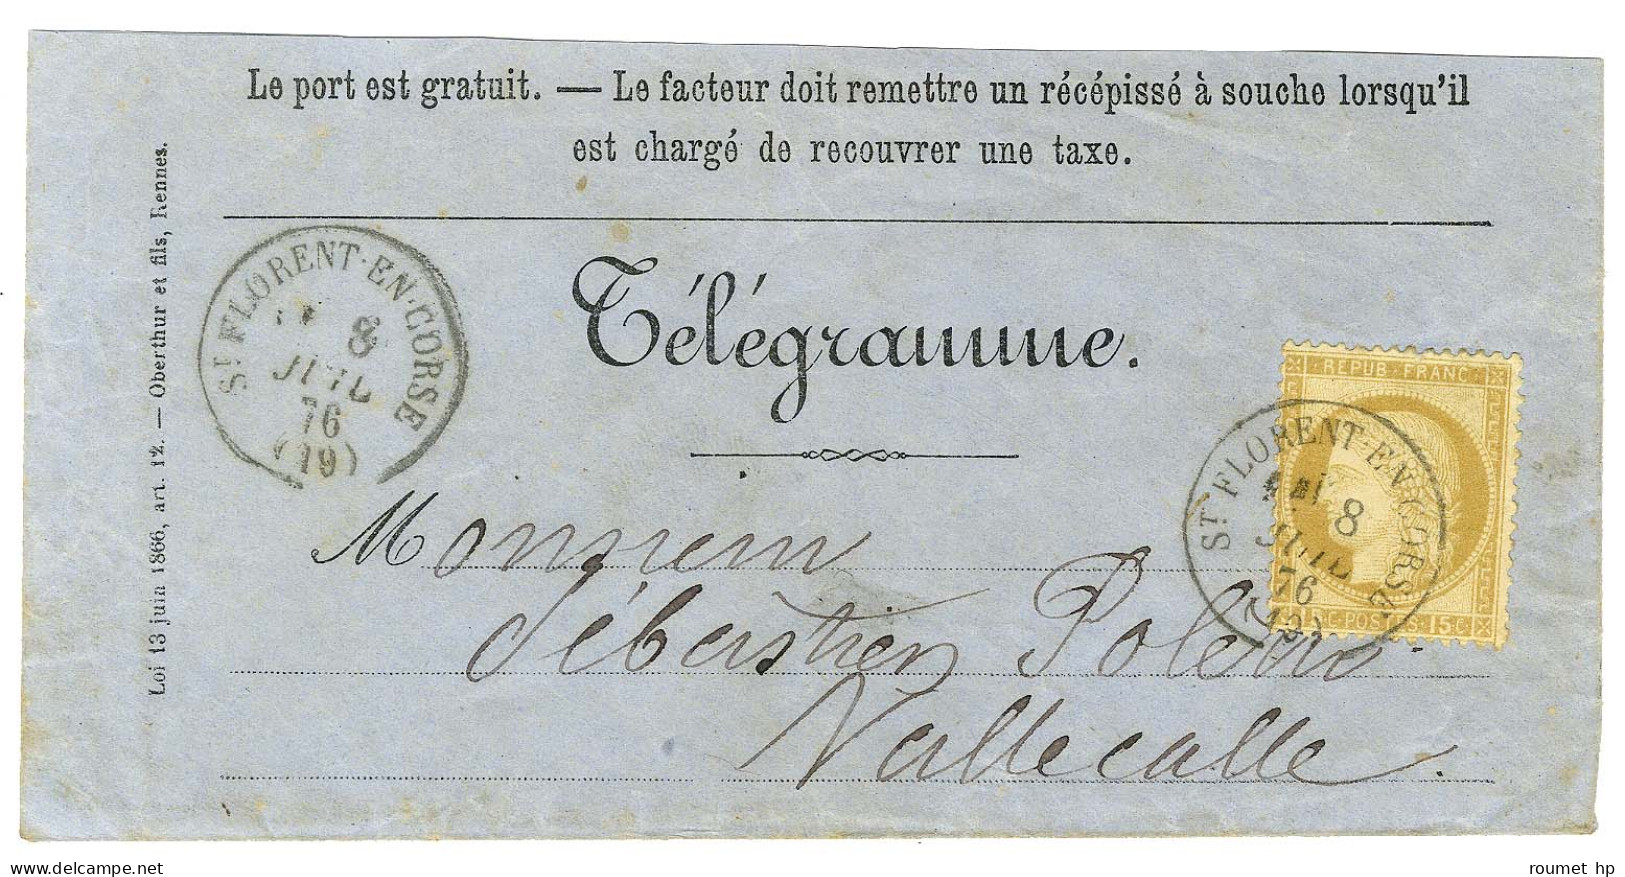 Le port est gratuit. — Le facteur doit remettre un récépissé à souche lorsqu'il
est chargé de recouvrer une taxe.
Loi 13 juin 1866, art. 12. — Oberthur et fils, Rennes.
ST FLORENT-EN-CORSE
8
JUIL
76
(19)
Télégramme.
REPUB. FRANC.
POSTES 15c
ST FLORENT-EN-CORSE
8
JUIL
76
Monsieur
Sébastien
Vallecalle.
delcampe.net
roumet hp